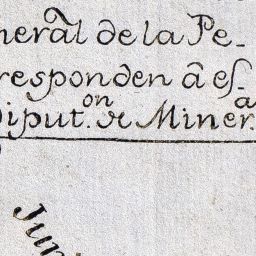 neral de la Pe-
responden â es-
Diput.on de Miner.a
Jun